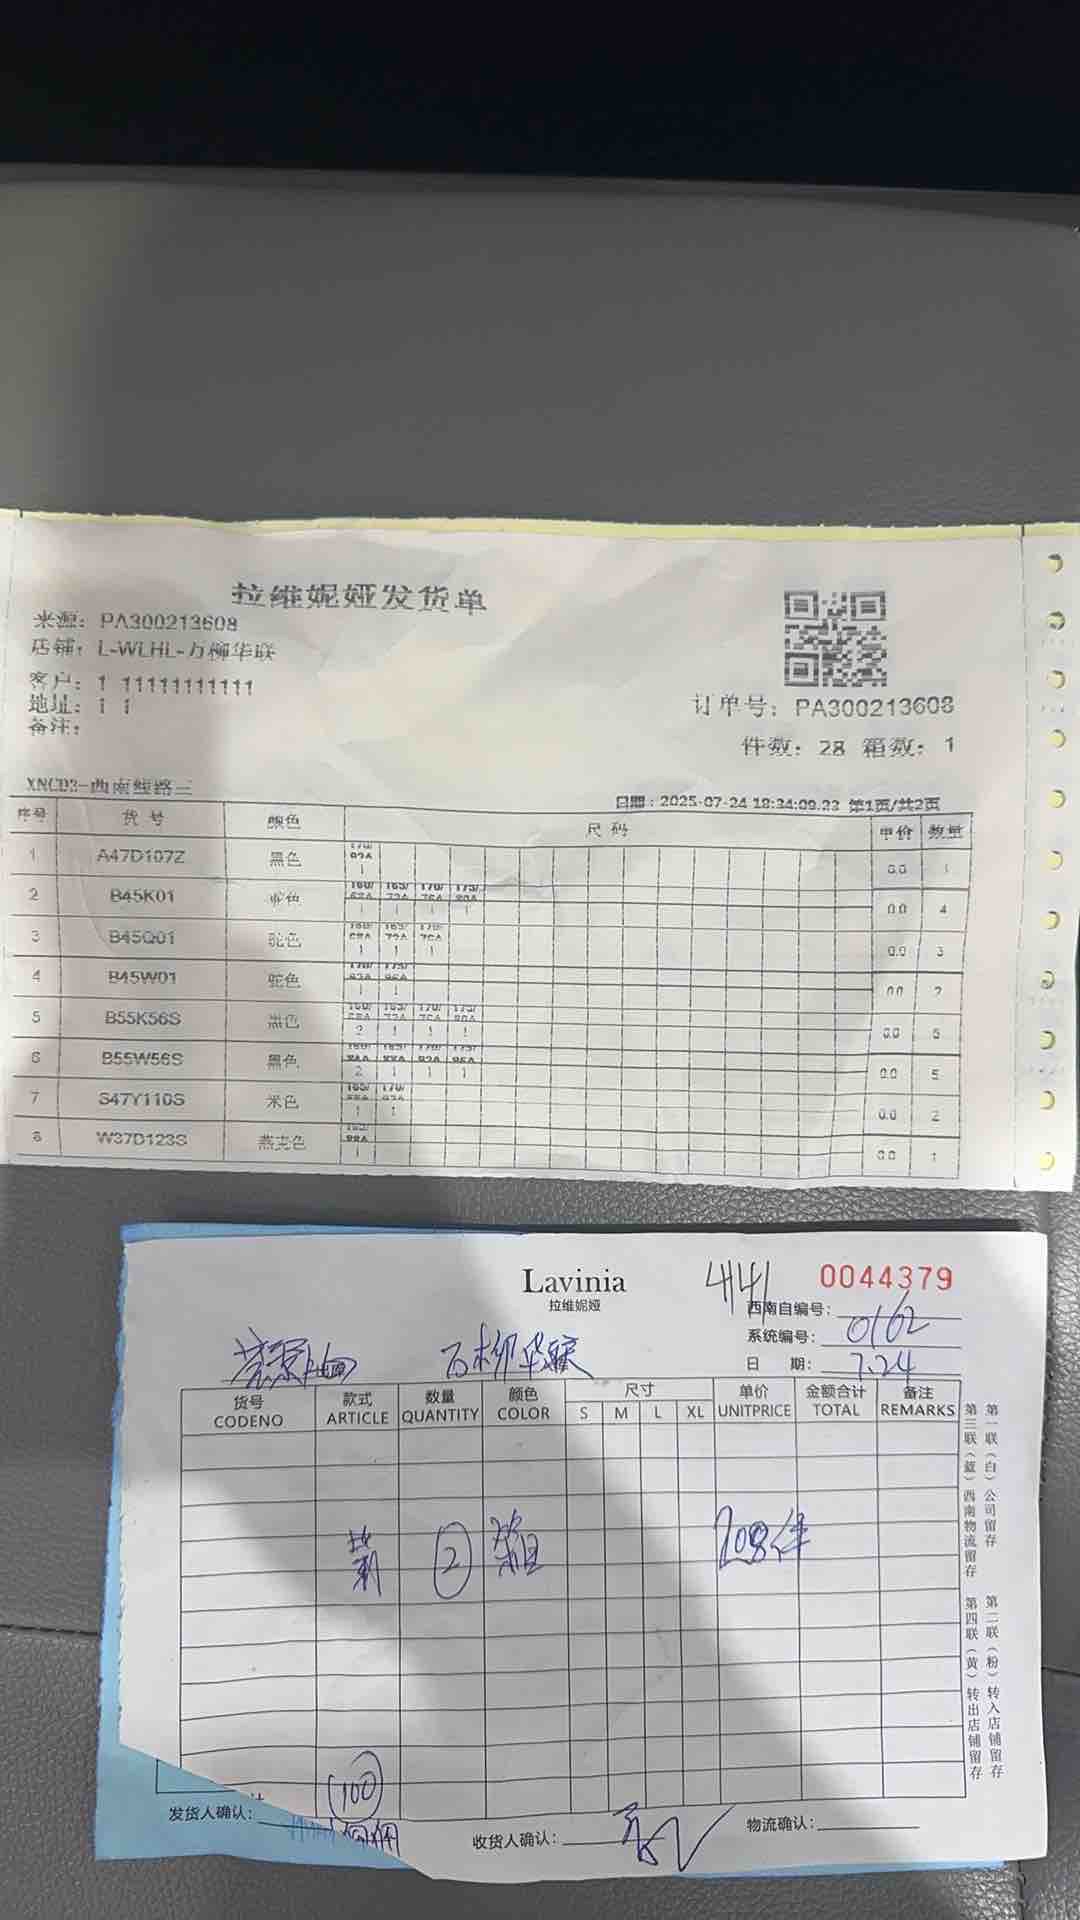 拉维妮娅发货单
来源：PA300213608
店铺：L-WLHL-万柳华联
客户：1 11111111111
地址：1 1
备注：
订单号：PA300213608
件数：28 箱数：1
XNCD3-西南线路三
日期：2025-07-24 18:34:09.23 第1页/共2页
序号 货号 颜色 尺码 单价 数量
1 A47D107Z 黑色 170/ 92A 1 0.0 1
2 B45K01 驼色 160/ 68A 165/ 72A 170/ 76A 175/ 80A 1 1 1 1 0.0 4
3 B45Q01 驼色 160/ 68A 165/ 72A 170/ 76A 1 1 1 0.0 3
4 B45W01 驼色 170/ 92A 175/ 96A 1 1 0.0 2
5 B55K56S 黑色 160/ 68A 165/ 72A 170/ 76A 175/ 80A 2 1 1 1 0.0 5
6 B55W56S 黑色 160/ 84A 165/ 88A 170/ 92A 175/ 96A 2 1 1 1 0.0 5
7 S47Y110S 米色 165/ 170/ 1 1 0.0 2
8 W37D123S 燕麦色 165/ 88A 1 0.0 1
Lavinia
拉维妮娅
4141
0044379
西南自编号：
系统编号：0162
日 期：7.24
万柳华联
货号 款式 数量 颜色 尺寸 单价 金额合计 备注
CODENO ARTICLE QUANTITY COLOR S M L XL UNITPRICE TOTAL REMARKS
2 箱 208件
100
发货人确认：
收货人确认：
物流确认：
第一联（白）公司留存
第二联（粉）转入店铺留存
第三联（蓝）西南物流留存
第四联（黄）转出店铺留存